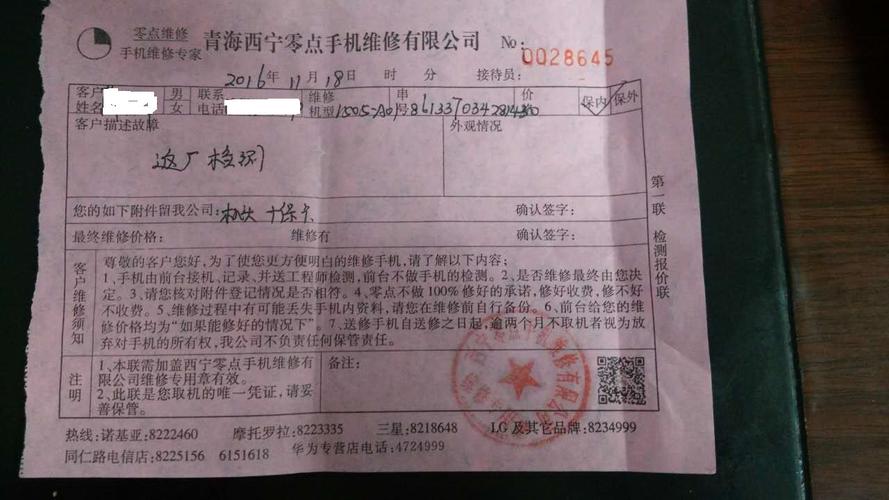 零点维修
手机维修专家
青海西宁零点手机维修有限公司 No: 0028645
2016年 11月 18日 时 分 接待员:
客户姓名 男 女 联系电话 维修机型 1505-A01 串号 价 保内 保外
客户描述故障 外观情况
返厂检测
您的如下附件留我公司: 机头 十保卡 确认签字:
最终维修价格: 维修有 确认签字:
客户维修须知
尊敬的客户您好,为了使您更方便明白的维修手机,请了解以下内容:
1、手机由前台接机、记录、并送工程师检测,前台不做手机的检测。2、是否维修最终由您决
定。3、请您核对附件登记情况是否相符。4、零点不做100%修好的承诺,修好收费,修不好
不收费。5、维修过程中有可能丢失手机内资料,请您在维修前自行备份。6、前台给您的维
修价格均为“如果能修好的情况下”。7、送修手机自送修之日起,逾两个月不取机者视为放
弃对手机的所有权,我公司不负责任何保管责任。
注明
1、本联需加盖西宁零点手机维修有
限公司维修专用章有效。
2、此联是您取机的唯一凭证,请妥
善保管。
备注:
第一联 检测报价联
热线:诺基亚:8222460 摩托罗拉:8223335 三星:8218648 LG及其它品牌:8234999
同仁路电信店:8225156 6151618 华为专营店电话:4724999